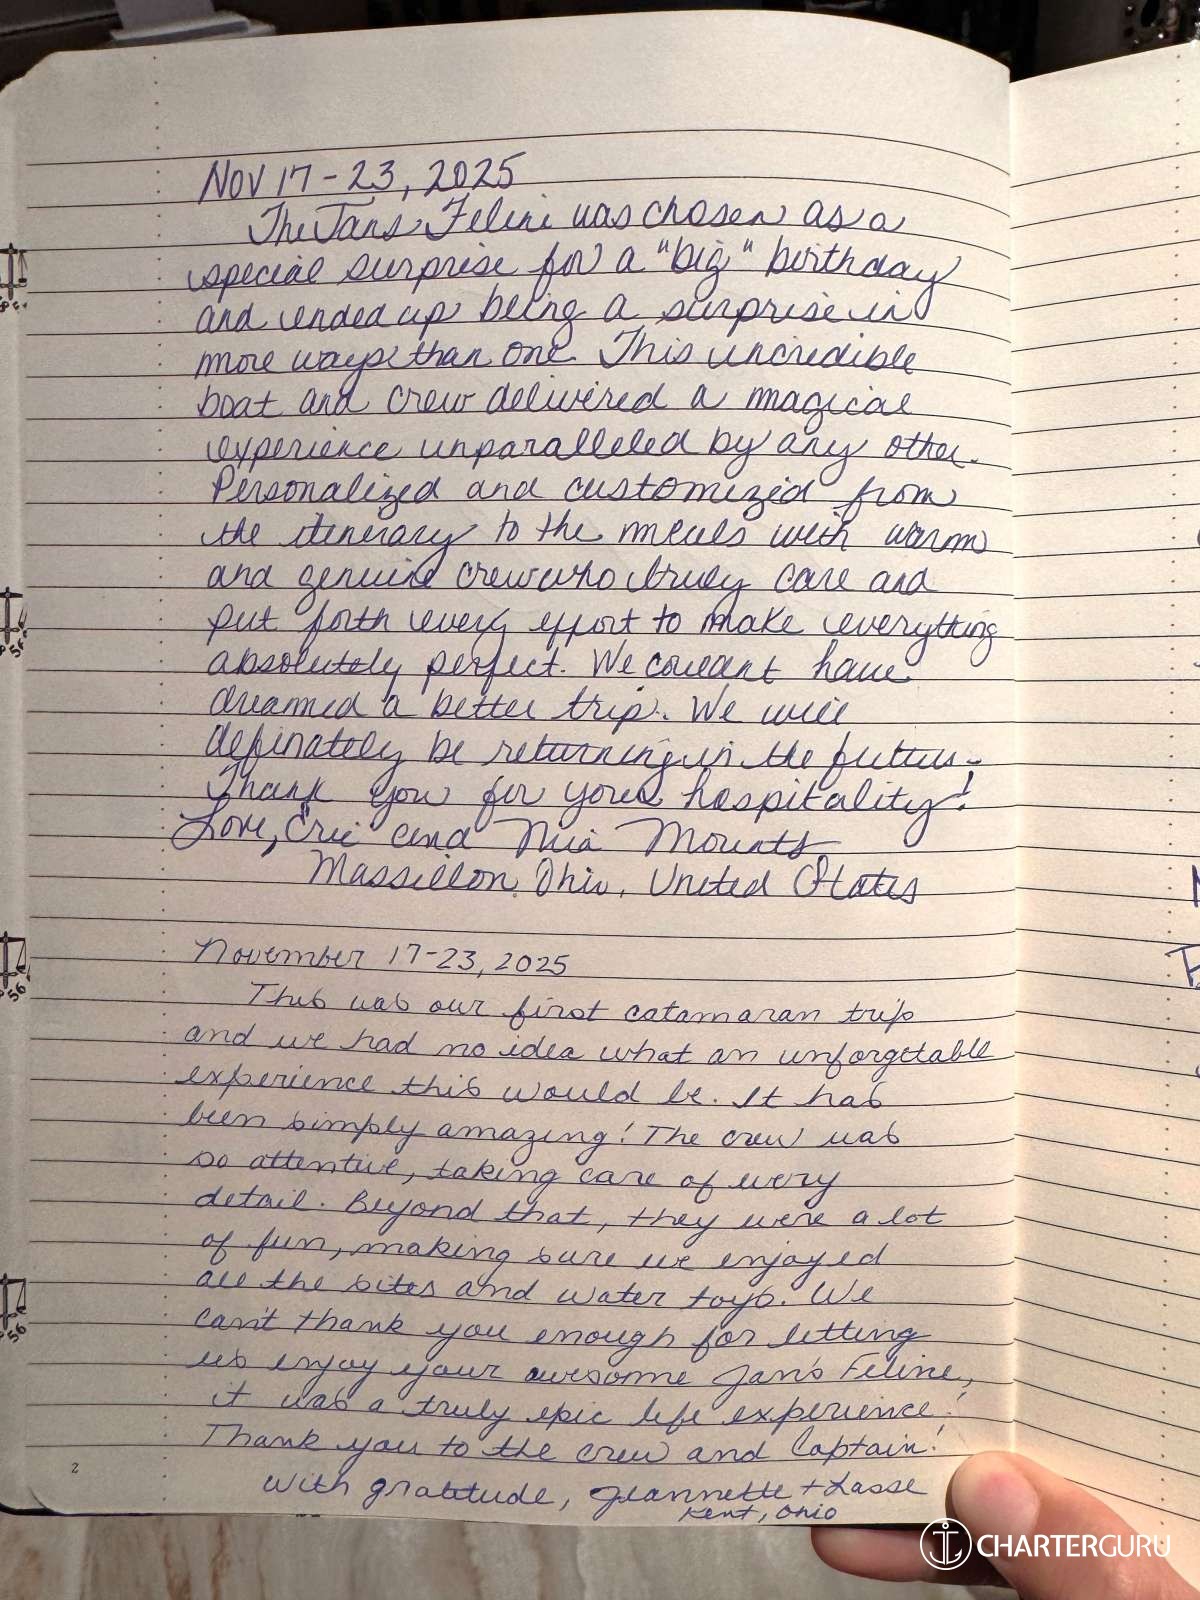 Nov 17-23, 2025
The Jans Feline was chosen as a
special surprise for a "big" birthday
and ended up being a surprise in
more ways than one. This incredible
boat and crew delivered a magical
experience unparalleled by any other.
Personalized and customized from
the itinerary to the meals with warm
and genuine crew who truly care and
put forth every effort to make everything
absolutely perfect. We couldnt have
dreamed a better trip. We will
definately be returning in the future.
Thank you for your hospitality!
Love, Eric and Mia Mounts
Massillon, Ohio, United States
November 17-23, 2025
This was our first catamaran trip
and we had no idea what an unforgettable
experience this would be. It has
been simply amazing! The crew was
so attentive, taking care of every
detail. Beyond that, they were a lot
of fun, making sure we enjoyed
all the sites and water toys. We
can't thank you enough for letting
us enjoy your awesome Jan's Feline,
it was a truly epic life experience!
Thank you to the crew and Captain!
With gratitude, Jeannette + Lasse
Kent, Ohio
2
CHARTERGURU